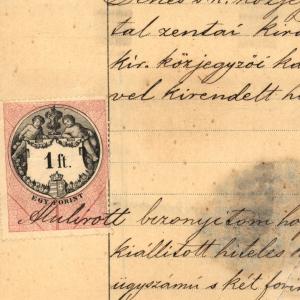 Dénes s k. közje
tal zentai kirá
kir. közjegyzői ka
vel kirendelt h
1 ft.
EGY FORINT
Alulirott bizonyitom ho
kiállitott hiteles h
ügyszámú s két forin